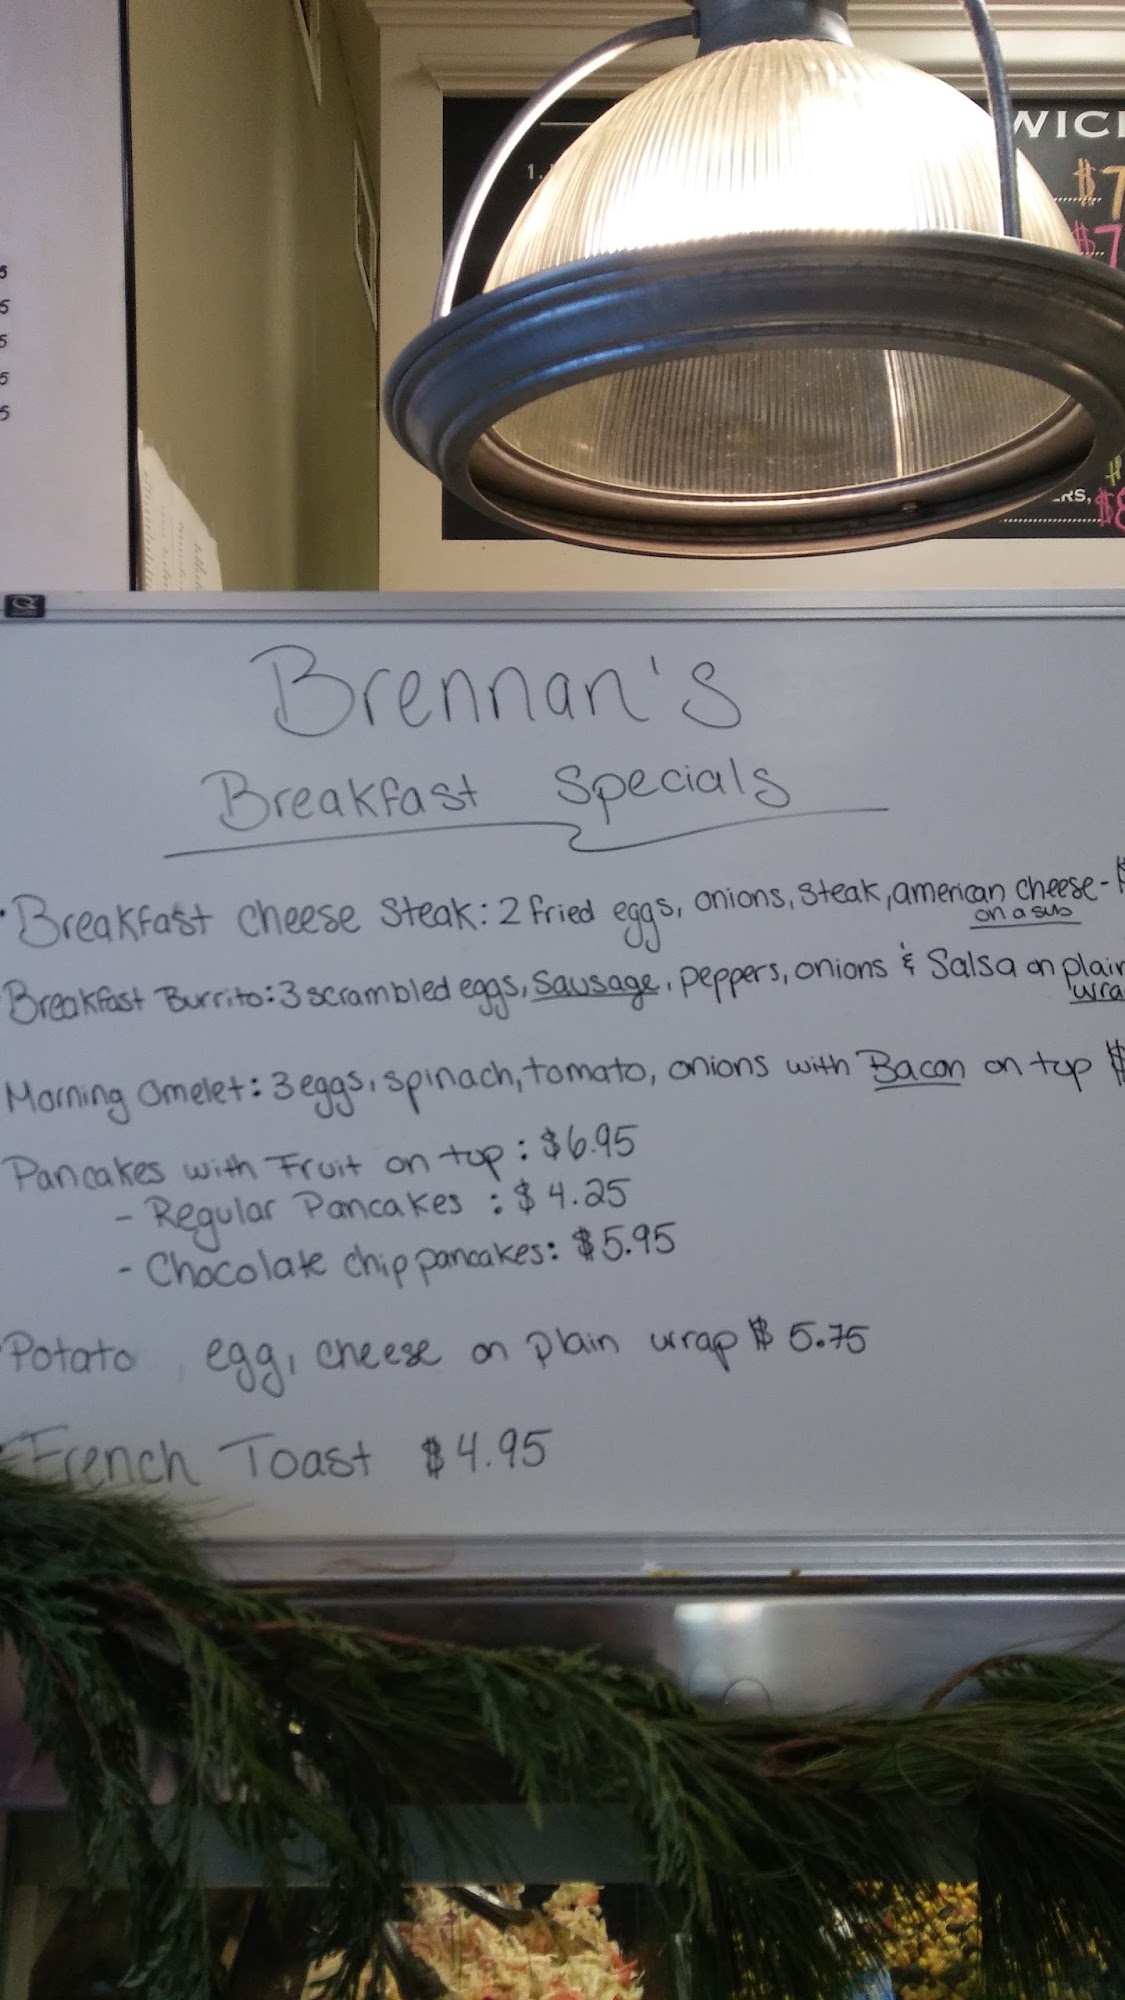 WICH
1.
$7
$7
5
5
5
5
5
RS, $8
Brennan's
Breakfast Specials
• Breakfast cheese steak: 2 fried eggs, onions, steak, american cheese - $
on a sub
Breakfast Burrito: 3 scrambled eggs, sausage, peppers, onions & Salsa on plain
wra
Morning omelet: 3 eggs, spinach, tomato, onions with Bacon on top $
Pancakes with Fruit on top: $6.95
- Regular Pancakes: $4.25
- Chocolate chip pancakes: $5.95
Potato, egg, cheese on plain wrap $5.75
French Toast $4.95